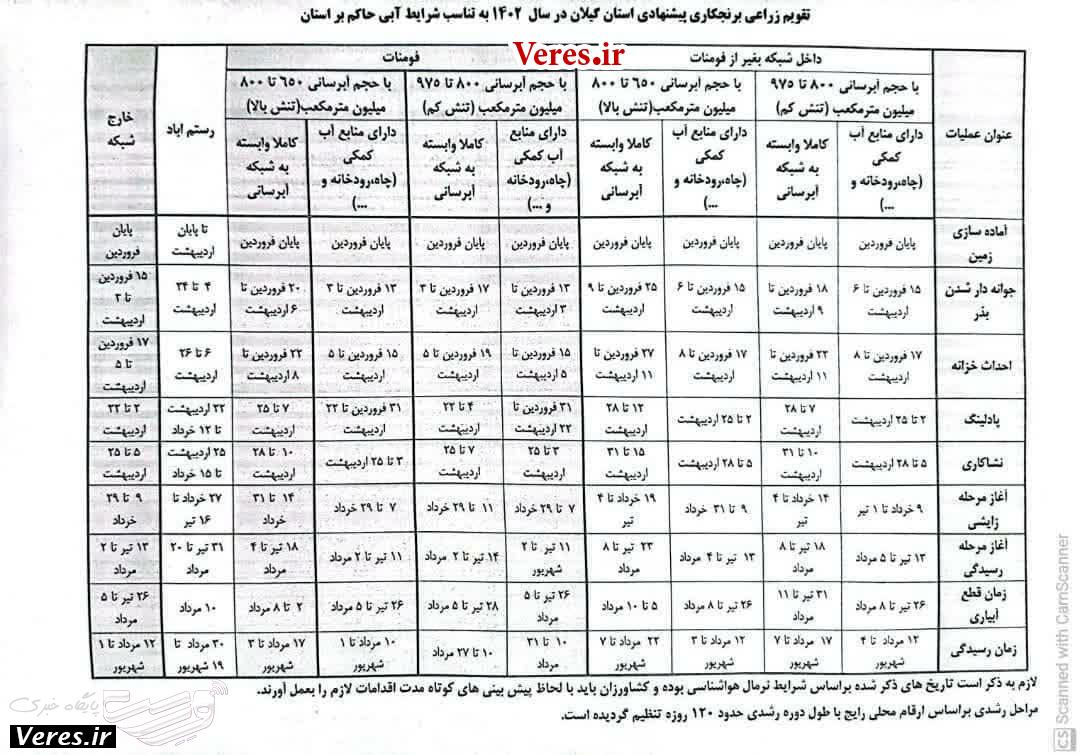 تقویم زراعی برنجکاری پیشنهادی استان گیلان در سال ۱۴۰۲ به تناسب شرایط آبی حاکم بر استان
Veres.ir
عنوان عملیات | داخل شبکه بغیر از فومنات | فومنات | رستم اباد | خارج شبکه
با حجم آبرسانی ۸۰۰ تا ۹۷۵ میلیون مترمکعب (تنش کم) | با حجم آبرسانی ۶۵۰ تا ۸۰۰ میلیون مترمکعب(تنش بالا) | با حجم آبرسانی ۸۰۰ تا ۹۷۵ میلیون مترمکعب (تنش کم) | با حجم آبرسانی ۶۵۰ تا ۸۰۰ میلیون مترمکعب(تنش بالا)
دارای منابع آب کمکی (چاه،رودخانه و ...) | کاملا وابسته به شبکه آبرسانی | دارای منابع آب کمکی (چاه،رودخانه و ...) | کاملا وابسته به شبکه آبرسانی | دارای منابع آب کمکی (چاه،رودخانه و ...) | کاملا وابسته به شبکه آبرسانی | دارای منابع آب کمکی (چاه،رودخانه و ...) | کاملا وابسته به شبکه آبرسانی
آماده سازی زمین | پایان فروردین | پایان فروردین | پایان فروردین | پایان فروردین | پایان فروردین | پایان فروردین | پایان فروردین | پایان فروردین | تا پایان اردیبهشت | پایان فروردین
جوانه دار شدن بذر | ۱۵ فروردین تا ۶ اردیبهشت | ۱۸ فروردین تا ۹ اردیبهشت | ۱۵ فروردین تا ۶ اردیبهشت | ۲۵ فروردین تا ۹ اردیبهشت | ۱۳ فروردین تا ۳ اردیبهشت | ۱۷ فروردین تا ۳ اردیبهشت | ۱۳ فروردین تا ۳ اردیبهشت | ۲۰ فروردین تا ۶ اردیبهشت | ۴ تا ۲۴ اردیبهشت | ۱۵ فروردین تا ۳ اردیبهشت
احداث خزانه | ۱۷ فروردین تا ۸ اردیبهشت | ۲۲ فروردین تا ۱۱ اردیبهشت | ۱۷ فروردین تا ۸ اردیبهشت | ۲۷ فروردین تا ۱۱ اردیبهشت | ۱۵ فروردین تا ۵ اردیبهشت | ۱۹ فروردین تا ۵ اردیبهشت | ۱۵ فروردین تا ۵ اردیبهشت | ۲۲ فروردین تا ۸ اردیبهشت | ۶ تا ۲۶ اردیبهشت | ۱۷ فروردین تا ۵ اردیبهشت
پادلینگ | ۲ تا ۲۵ اردیبهشت | ۷ تا ۲۸ اردیبهشت | ۲ تا ۲۵ اردیبهشت | ۱۲ تا ۲۸ اردیبهشت | ۳۱ فروردین تا ۲۲ اردیبهشت | ۴ تا ۲۲ اردیبهشت | ۳۱ فروردین تا ۲۲ اردیبهشت | ۷ تا ۲۵ اردیبهشت | ۲۲ اردیبهشت تا ۱۲ خرداد | ۲ تا ۲۲ اردیبهشت
نشاکاری | ۵ تا ۲۸ اردیبهشت | ۱۰ تا ۳۱ اردیبهشت | ۵ تا ۲۸ اردیبهشت | ۱۵ تا ۳۱ اردیبهشت | ۳ تا ۲۵ اردیبهشت | ۷ تا ۲۵ اردیبهشت | ۳ تا ۲۵ اردیبهشت | ۱۰ تا ۲۸ اردیبهشت | ۲۵ اردیبهشت تا ۱۵ خرداد | ۵ تا ۲۵ اردیبهشت
آغاز مرحله زایشی | ۹ خرداد تا ۱ تیر | ۱۴ خرداد تا ۴ تیر | ۹ تا ۳۱ خرداد | ۱۹ خرداد تا ۴ تیر | ۷ تا ۲۹ خرداد | ۱۱ تا ۲۹ خرداد | ۷ تا ۲۹ خرداد | ۱۴ تا ۳۱ خرداد | ۲۷ خرداد تا ۱۶ تیر | ۹ تا ۲۹ خرداد
آغاز مرحله رسیدگی | ۱۳ تیر تا ۵ مرداد | ۱۸ تیر تا ۸ مرداد | ۱۳ تیر تا ۴ مرداد | ۲۳ تیر تا ۸ مرداد | ۱۱ تیر تا ۲ شهریور | ۱۴ تیر تا ۲ مرداد | ۱۱ تیر تا ۲ مرداد | ۱۸ تیر تا ۴ مرداد | ۳۱ تیر تا ۲۰ مرداد | ۱۳ تیر تا ۲ مرداد
زمان قطع آبیاری | ۲۶ تیر تا ۸ مرداد | ۳۱ تیر تا ۱۱ مرداد | ۲۶ تیر تا ۸ مرداد | ۵ تا ۱۰ مرداد | ۲۶ تیر تا ۵ مرداد | ۲۸ تیر تا ۵ مرداد | ۲۶ تیر تا ۵ مرداد | ۲ تا ۸ مرداد | ۱۰ مرداد | ۲۶ تیر تا ۵ مرداد
زمان رسیدگی | ۱۲ مرداد تا ۴ شهریور | ۱۷ مرداد تا ۷ شهریور | ۱۲ مرداد تا ۳ شهریور | ۲۲ مرداد تا ۷ شهریور | ۱۰ تا ۳۱ مرداد | ۱۰ تا ۲۷ مرداد | ۱۰ مرداد تا ۱ شهریور | ۱۷ مرداد تا ۳ شهریور | ۳۰ مرداد تا ۱۹ شهریور | ۱۲ مرداد تا ۱ شهریور
لازم به ذکر است تاریخ های ذکر شده براساس شرایط نرمال هواشناسی بوده و کشاورزان باید با لحاظ پیش بینی های کوتاه مدت اقدامات لازم را بعمل آورند.
مراحل رشدی براساس ارقام محلی رایج با طول دوره رشدی حدود ۱۲۰ روزه تنظیم گردیده است.
پایگاه خبری
Veres.ir
CS Scanned with CamScanner